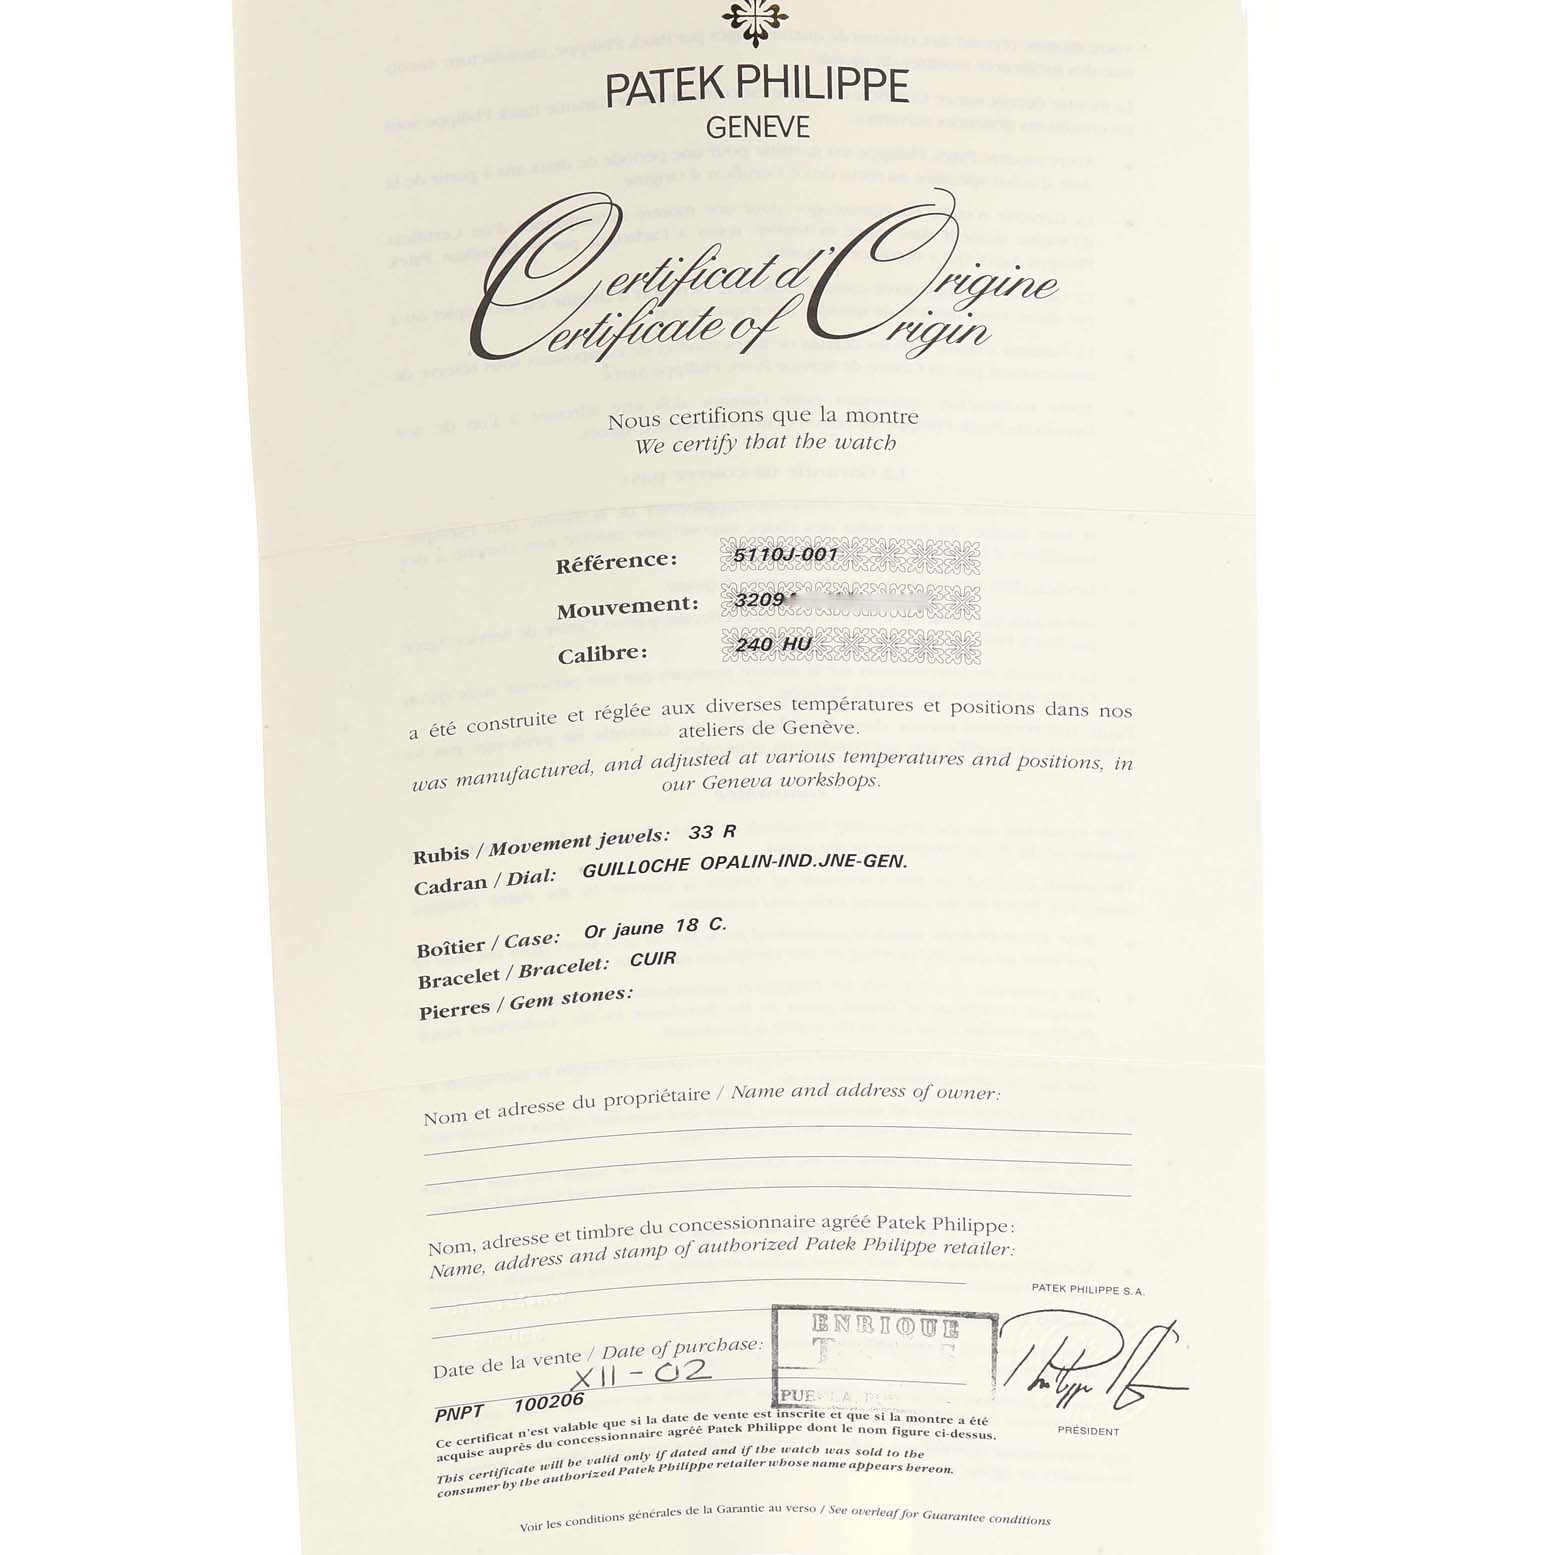 PATEK PHILIPPE
GENEVE
Certificat d'Origine
Certificate of Origin
Nous certifions que la montre
We certify that the watch
Référence: 5110J-001
Mouvement: 3209
Calibre: 240 HU
a été construite et réglée aux diverses températures et positions dans nos
ateliers de Genève.
was manufactured, and adjusted at various temperatures and positions, in
our Geneva workshops.
Rubis / Movement jewels: 33 R
Cadran / Dial: GUILLOCHE OPALIN-IND.JNE-GEN.
Boîtier / Case: Or jaune 18 C.
Bracelet / Bracelet: CUIR
Pierres / Gem stones:
Nom et adresse du propriétaire / Name and address of owner:
Nom, adresse et timbre du concessionnaire agréé Patek Philippe:
Name, address and stamp of authorized Patek Philippe retailer:
PATEK PHILIPPE S.A.
ENRIQUE
Date de la vente / Date of purchase:
XII-02
PNPT 100206
PRÉSIDENT
Ce certificat n'est valable que si la date de vente est inscrite et que si la montre a été
acquise auprès du concessionnaire agréé Patek Philippe dont le nom figure ci-dessus.
This certificate will be valid only if dated and if the watch was sold to the
consumer by the authorized Patek Philippe retailer whose name appears hereon.
Voir les conditions générales de la Garantie au verso / See overleaf for Guarantee conditions